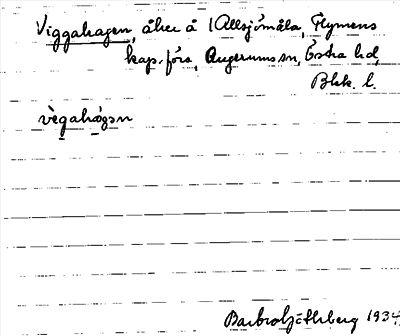 Viggahagen, åker å 1 Allsjömåla, Flymens
kap.förs, Augerums sn, Östra hd,
Blek. l.
vègahágən
Barbro Söthberg 1934.